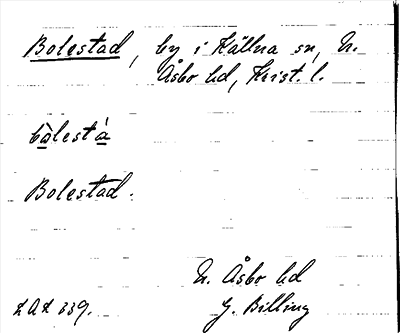 Bolestad, by i Källna sn, N.
Åsbo hd, Krist. l.
bòlestà
Bolestad.
N. Åsbo hd
LAL 339.
G. Billing